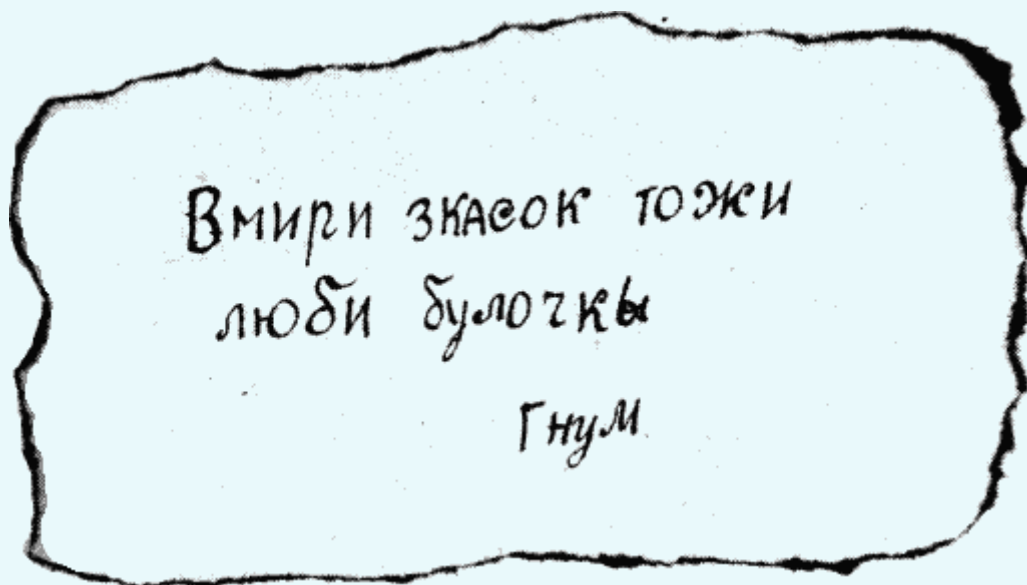 Вмири зкасок тожи
люби булочкы
Гнум